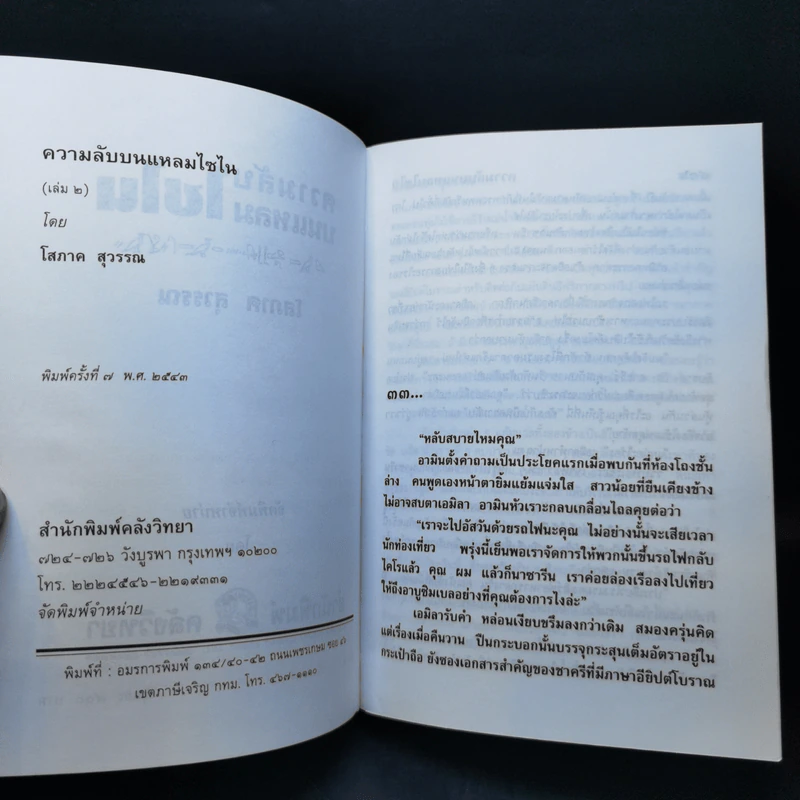 ความลับบนแหลมไซไน
(เล่ม ๒)
โดย
โสภาค สุวรรณ
พิมพ์ครั้งที่ ๗ พ.ศ. ๒๕๔๓
สำนักพิมพ์คลังวิทยา
๗๒๔-๗๒๖ วังบูรพา กรุงเทพฯ ๑๐๒๐๐
โทร. ๒๒๒๔๕๔๖-๒๒๑๙๓๓๑
จัดพิมพ์จำหน่าย
พิมพ์ที่ : อมรการพิมพ์ ๑๓๔/๔๐-๔๒ ถนนเพชรเกษม ซอย
เขตภาษีเจริญ กทม. โทร. ๔๖๗-๑๑๑๐
๓๓...
"หลับสบายไหมคุณ"
อามินตั้งคำถามเป็นประโยคแรกเมื่อพบกันที่ห้องโถงชั้น
ล่าง คนพูดเองหน้าตายิ้มแย้มแจ่มใส สาวน้อยที่ยืนเคียงข้าง
ไม่อาจสบตาเอมิลา อามินหัวเราะกลบเกลื่อนไถลคุยต่อว่า
"เราจะไปอัสวันด้วยรถไฟนะคุณ ไม่อย่างนั้นจะเสียเวลา
นักท่องเที่ยว พรุ่งนี้เย็นพอเราจัดการให้พวกนั้นขึ้นรถไฟกลับ
ไคโรแล้ว คุณ ผม แล้วก็นาซารีน เราค่อยล่องเรือลงไปเที่ยว
ให้ถึงอาบูซิมเบลอย่างที่คุณต้องการไงล่ะ"
เอมิลารับคำ หล่อนเงียบขรึมลงกว่าเดิม สมองครุ่นคิด
แต่เรื่องเมื่อคืนวาน ปืนกระบอกนั้นบรรจุกระสุนเต็มอัตราอยู่ใน
กระเป๋าถือ ยังซองเอกสารสำคัญของซาครีที่มีภาษาอียิปต์โบราณ